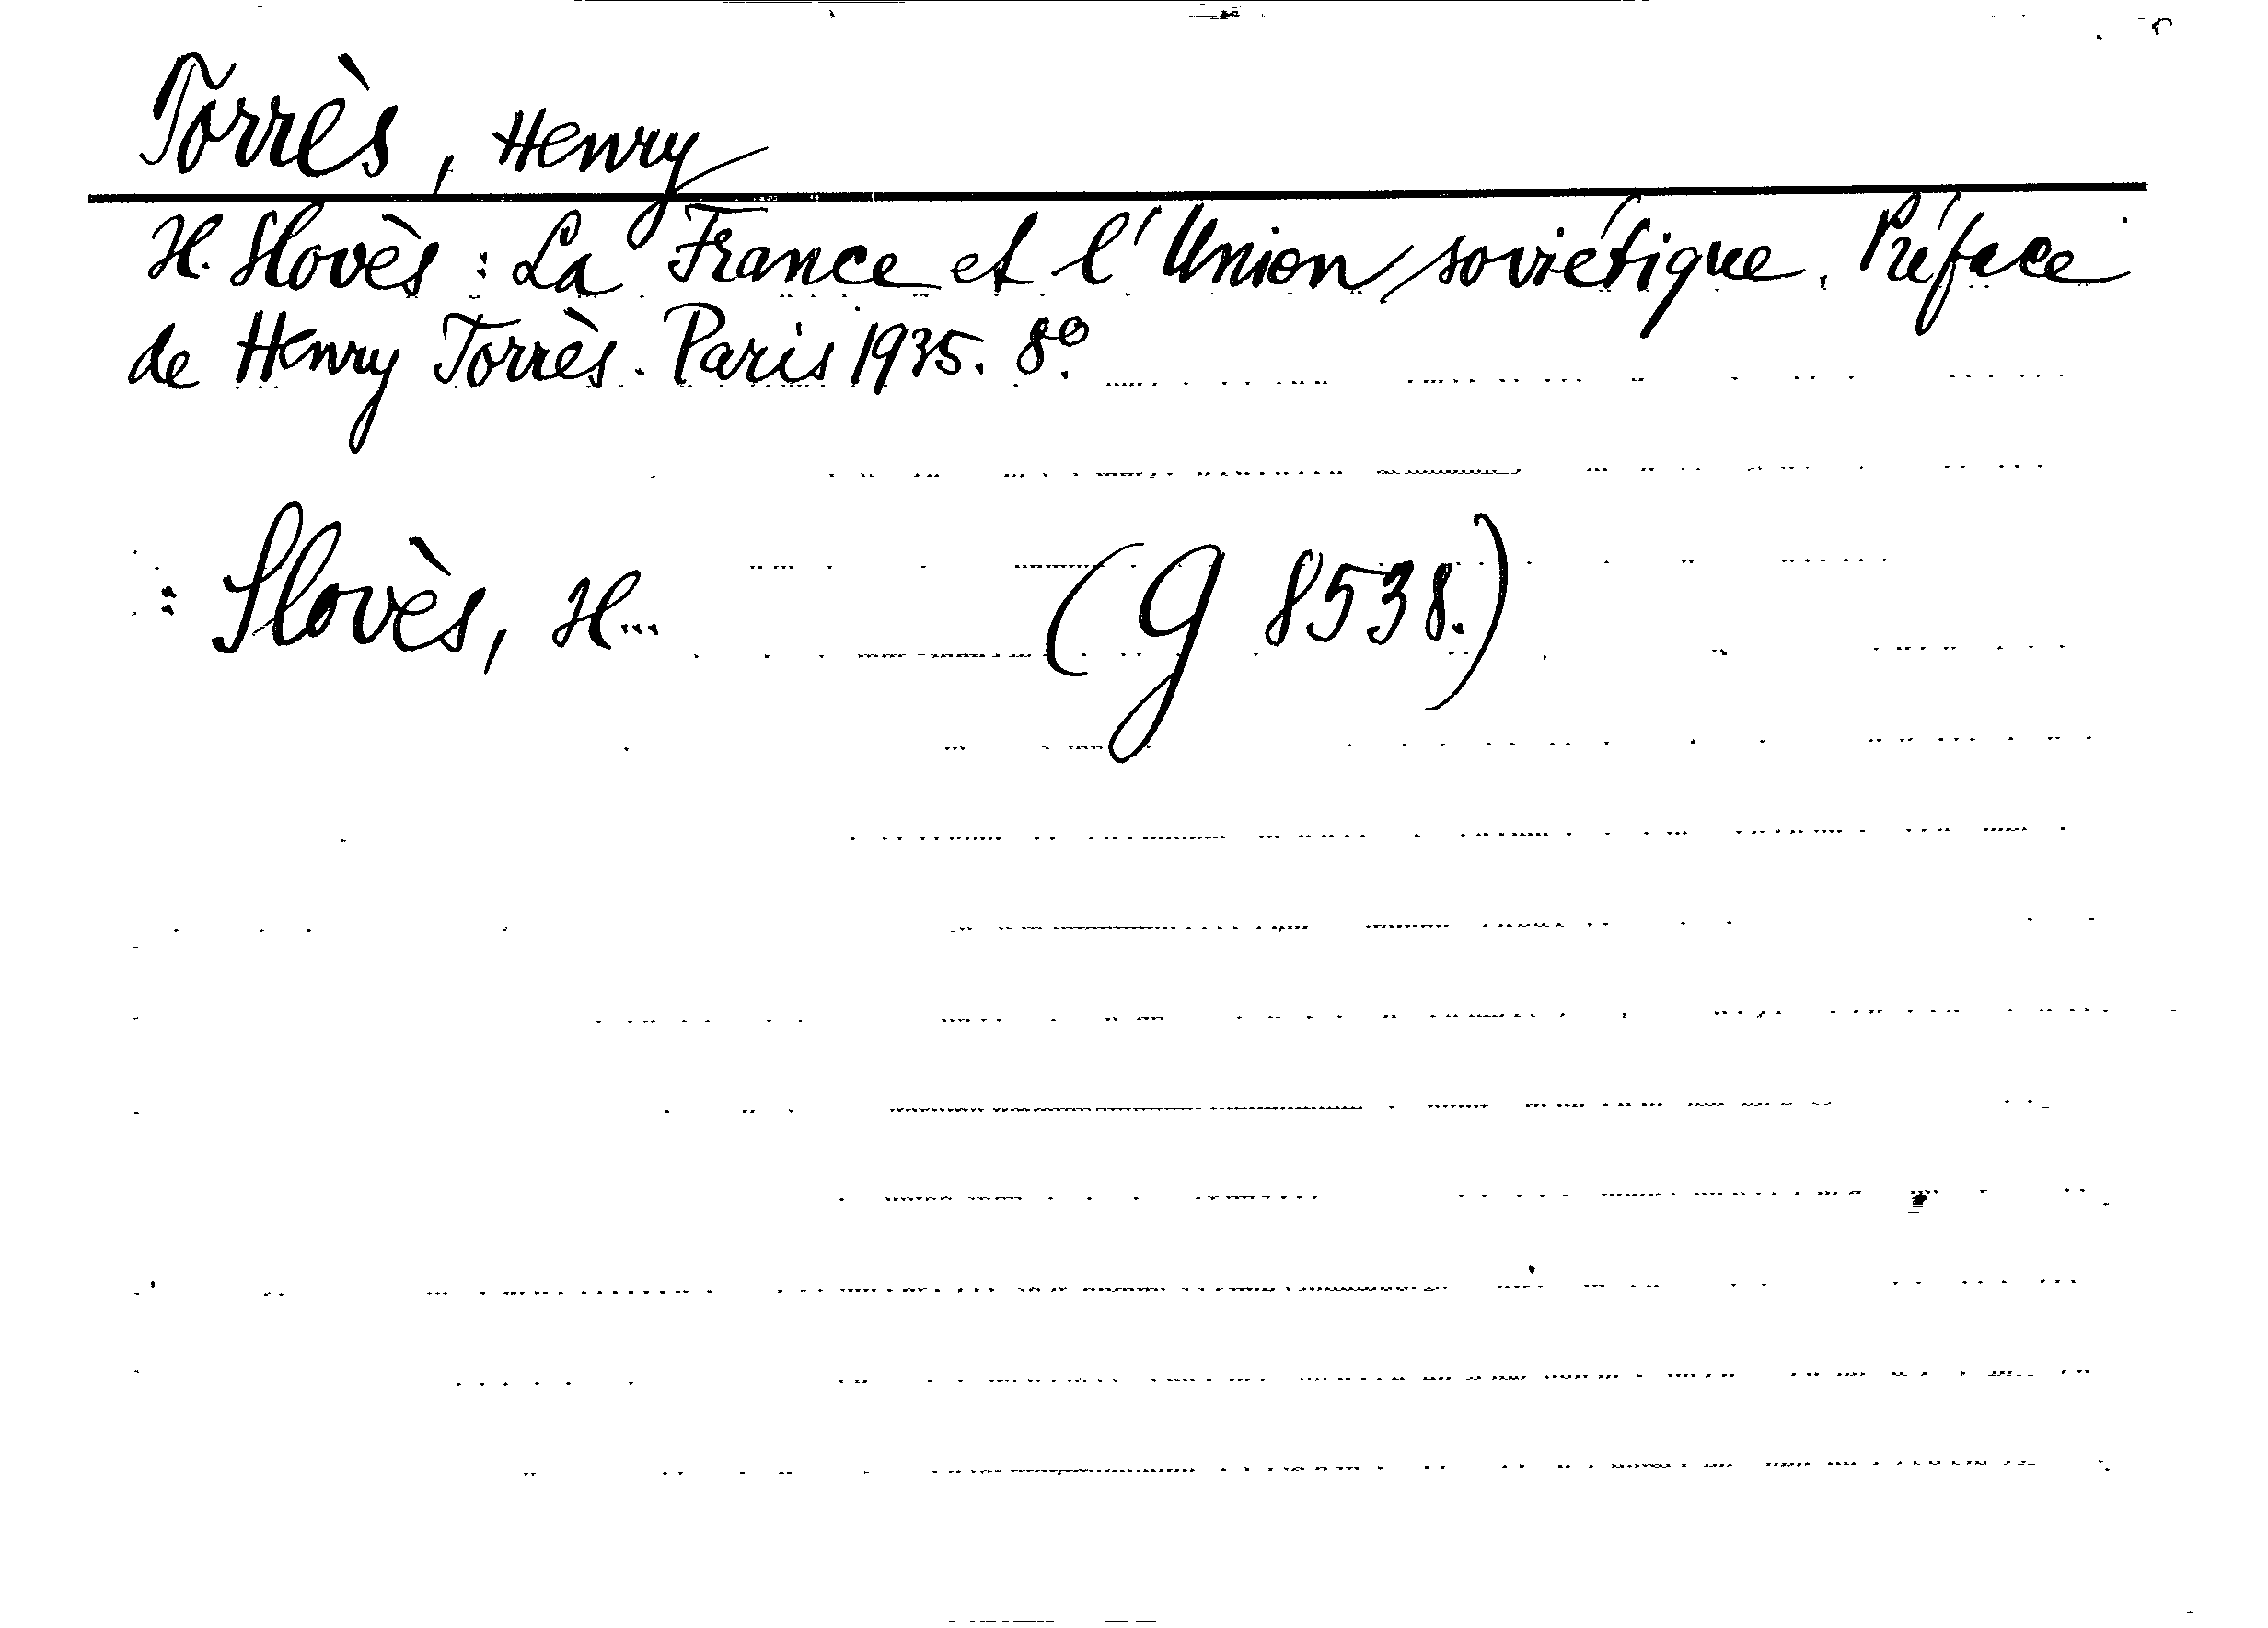 Torrès, Henry
H. Slovès : La France et l'Union soviétique. Préface
de Henry Torrès. Paris 1935. 8º.
: Slovès, H... (G 8538.)